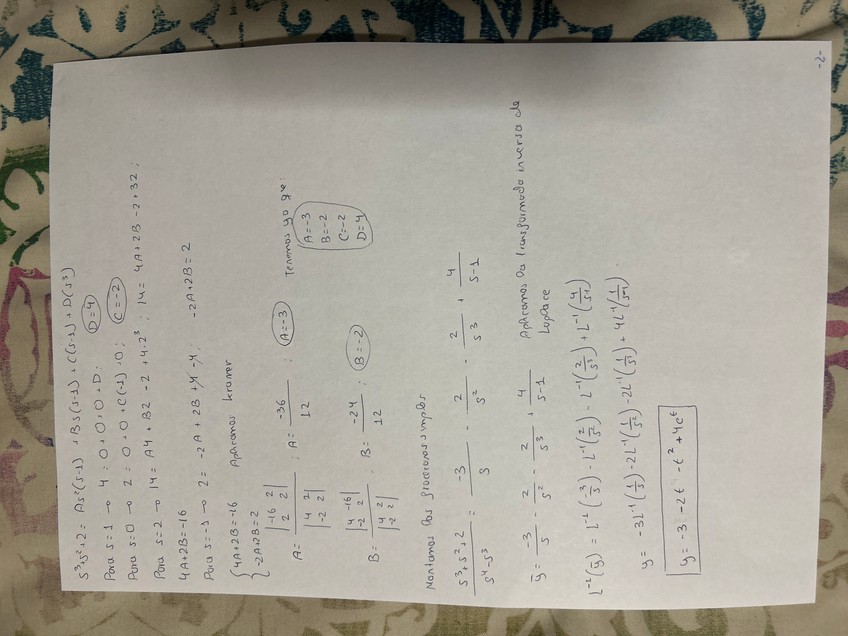 s³+s²+2 = As²(s-1) + Bs(s-1) + C(s-1) + D(s³)
Para s=1 → 4 = 0+0+0+D; D=4
Para s=0 → 2 = 0+0+C(-1)+0; C=-2
Para s=2 → 14 = A4 + B2 -2 + 4·2³ ; 14 = 4A+2B -2+32;
4A+2B=-16
Para s=-1 → 2 = -2A + 2B +4 -4; -2A+2B=2
{ 4A+2B=-16
-2A+2B=2 Aplicamos kramer
A = |-16 2; 2 2| / |4 2; -2 2| ; A = -36/12 ; A=-3
B = |4 -16; -2 2| / |4 2; -2 2| ; B = -24/12 ; B=-2
Tenemos ya que:
A=-3
B=-2
C=-2
D=4
Montamos las fracciones simples
s³+s²+2 / s⁴-s³ = -3/s - 2/s² - 2/s³ + 4/s-1
ȳ = -3/s - 2/s² - 2/s³ + 4/s-1 Aplicamos la transformada inversa de
Laplace
L⁻¹(ȳ) = L⁻¹(-3/s) - L⁻¹(2/s²) - L⁻¹(2/s³) + L⁻¹(4/s-1)
y = -3L⁻¹(1/s) - 2L⁻¹(1/s²) - 2L⁻¹(1/s³) + 4L⁻¹(1/s-1).
y = -3 -2t -t² +4eᵗ
-2-